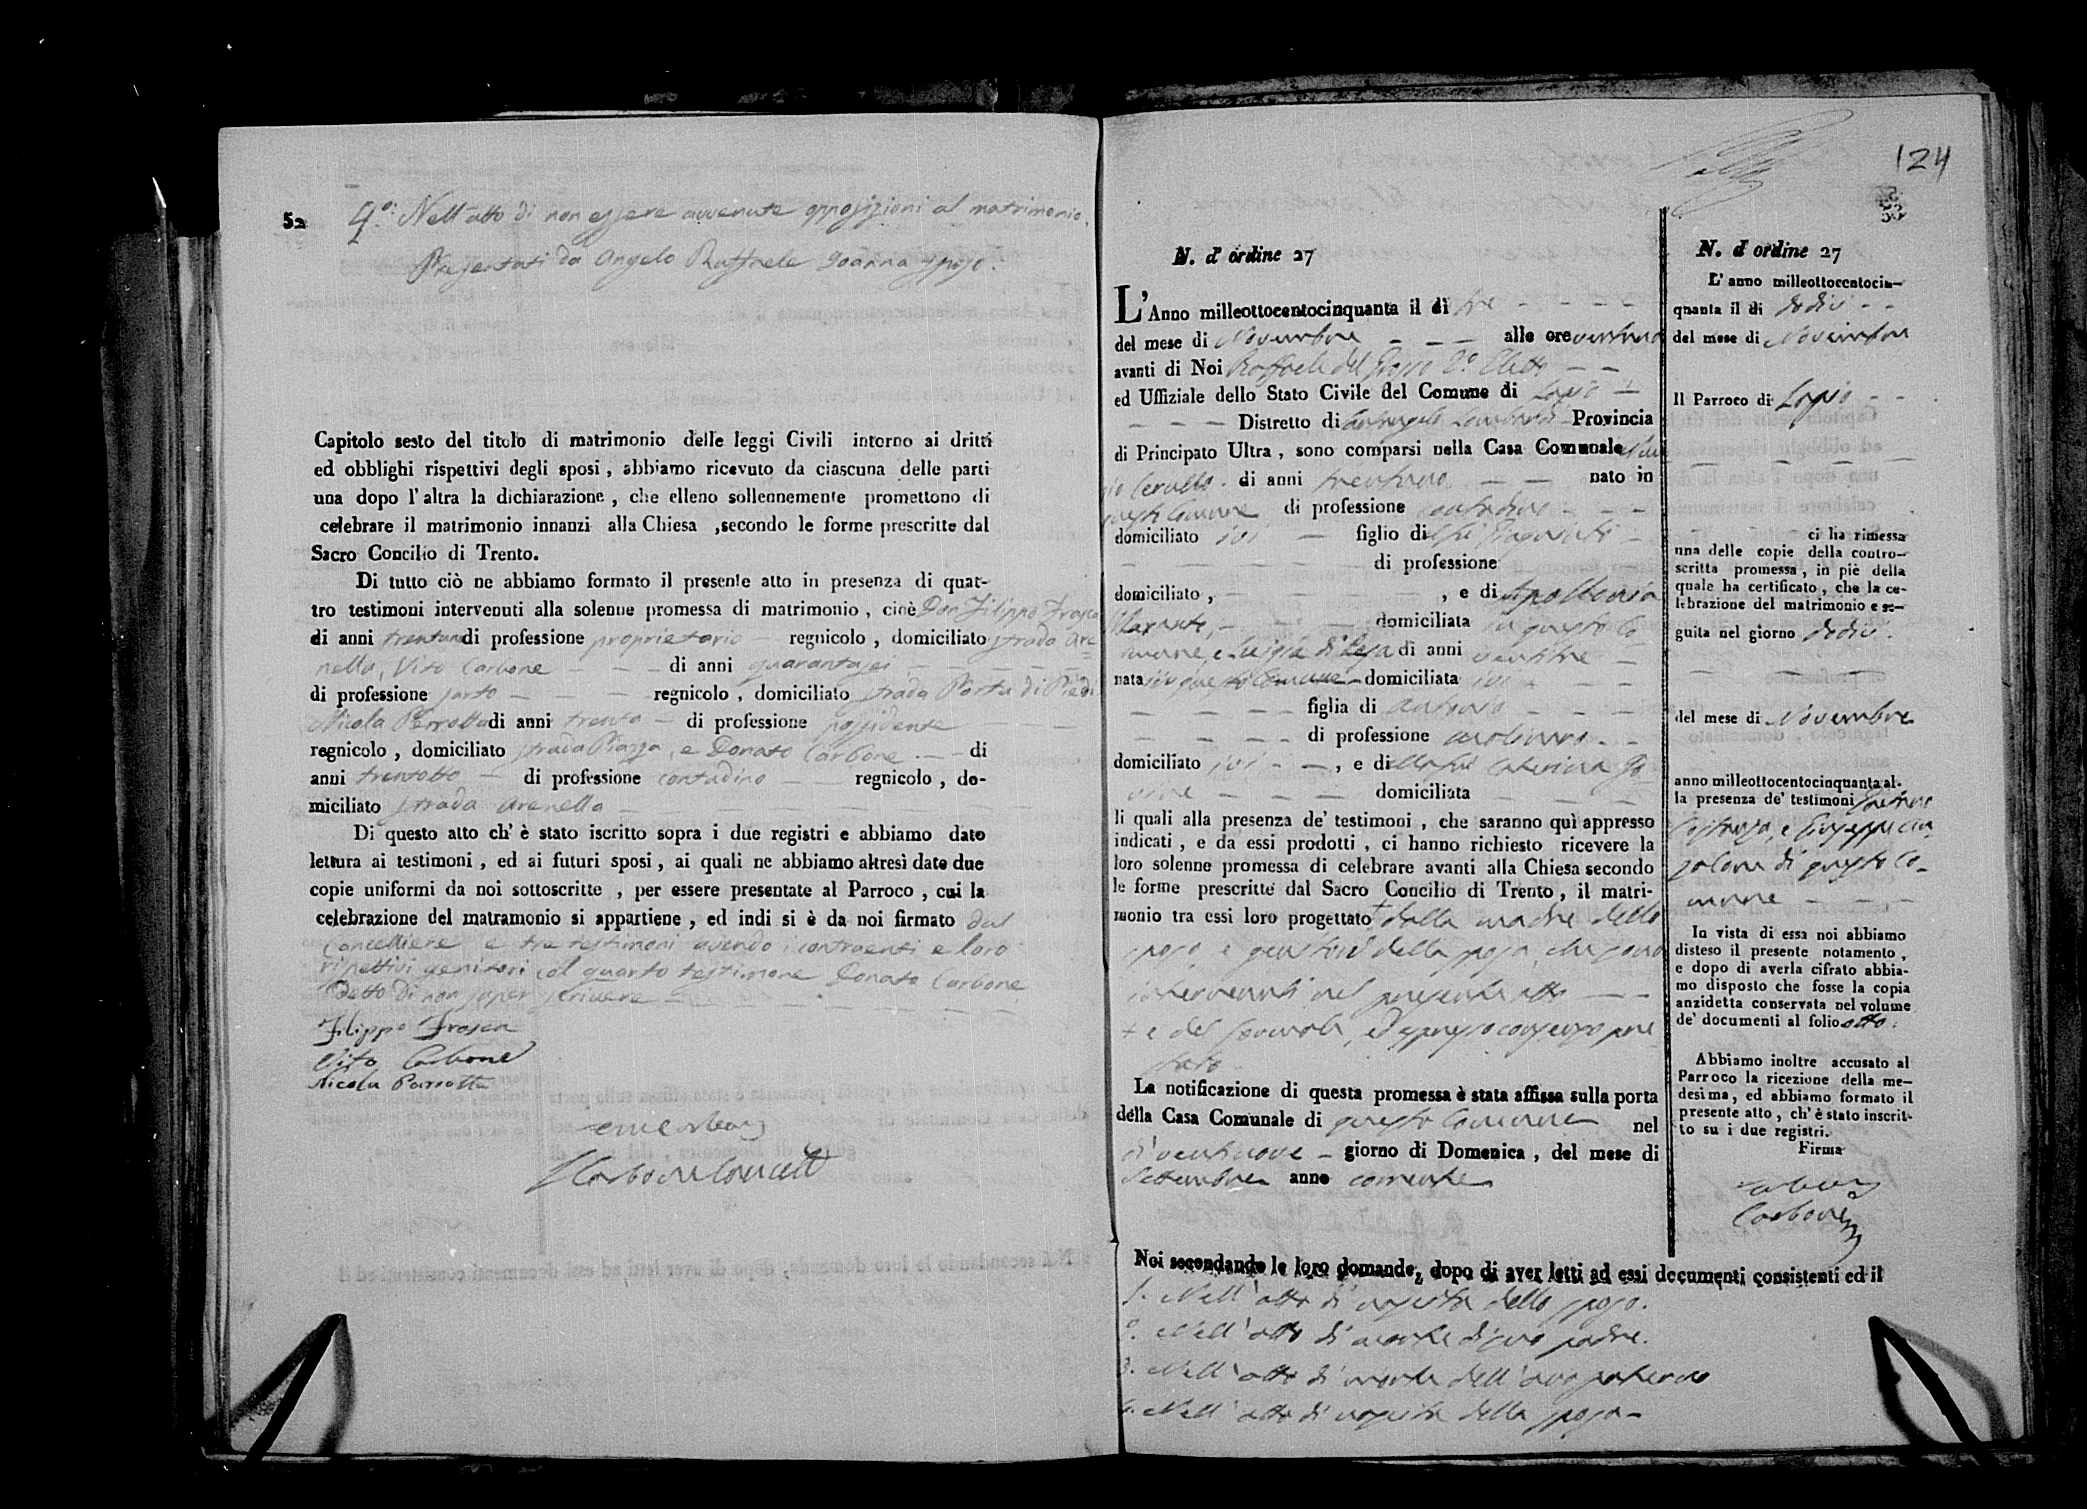 52
4°. Nell'atto di non essere avvenute opposizioni al matrimonio.
Presentati da Angelo Raffaele Joanna sposo.
Capitolo sesto del titolo di matrimonio delle leggi Civili intorno ai dritti
ed obblighi rispettivi degli sposi, abbiamo ricevuto da ciascuna delle parti
una dopo l'altra la dichiarazione, che elleno sollennemente promettono di
celebrare il matrimonio innanzi alla Chiesa, secondo le forme prescritte dal
Sacro Concilio di Trento.
Di tutto ciò ne abbiamo formato il presente atto in presenza di quat-
tro testimoni intervenuti alla solenne promessa di matrimonio, cioè Don Filippo Frasca
di anni trentuno di professione proprietario regnicolo, domiciliato strada Are=
nella, Vito Carbone di anni quarantasei
di professione sarto regnicolo, domiciliato strada Porta di Piedi
Nicola Perrotta di anni trenta di professione possidente
regnicolo, domiciliato strada Piazza, e Donato Carbone di
anni trentotto di professione contadino regnicolo, do-
miciliato strada Arenella
Di questo atto ch'è stato iscritto sopra i due registri e abbiamo dato
lettura ai testimoni, ed ai futuri sposi, ai quali ne abbiamo altresì date due
copie uniformi da noi sottoscritte, per essere presentate al Parroco, cui la
celebrazione del matramonio si appartiene, ed indi si è da noi firmato dal
Cancelliere e tre testimoni avendo i contraenti e loro
rispettivi genitori col quarto testimone Donato Carbone
detto di non saper scrivere
Filippo Frasca
Vito Carbone
Nicola Parrotta
Carbone Cancell
124
N. d'ordine 27
L'Anno milleottocentocinquanta il di tre
del mese di Novembre alle ore ventuno
avanti di Noi Raffaele del Grosso 2° Eletto
ed Uffiziale dello Stato Civile del Comune di Lapio
Distretto di Santangelo Lombardi Provincia
di Principato Ultra, sono comparsi nella Casa Comunale
Cerullo di anni trentuno nato in
questo Comune di professione contadino
domiciliato ivi figlio di
di professione
domiciliato, , e di Apollonia
domiciliata in questo Co
mune, e Luigia di Leja di anni ventitre
nata in questo Comune domiciliata ivi
figlia di Antonio
di professione molinaro
domiciliato ivi, e di Caterina
domiciliata
li quali alla presenza de' testimoni, che saranno quì appresso
indicati, e da essi prodotti, ci hanno richiesto ricevere la
loro solenne promessa di celebrare avanti alla Chiesa secondo
le forme prescritte dal Sacro Concilio di Trento, il matri-
monio tra essi loro progettato + dalla madre dello
sposo e genitori della sposa, che sono
intervenuti nel presente atto
+ e del formale, ed espresso consenso pre
stato
La notificazione di questa promessa è stata affissa sulla porta
della Casa Comunale di questo Comune nel
dì ventinove giorno di Domenica, del mese di
Settembre anno corrente
Noi secondando le loro domande, dopo di aver letti ad essi documenti consistenti ed il
1. Nell'atto di nascita dello sposo.
2. Nell'atto di morte di suo padre.
3. Nell'atto di morte dell'avo paterno
4. Nell'atto di nascita della sposa
N. d'ordine 27
L'anno milleottocentocin-
quanta il di dodici
del mese di Novembre
Il Parroco di Lapio
ci ha rimessa
una delle copie della contro-
scritta promessa, in piè della
quale ha certificato, che la ce-
lebrazione del matrimonio e se-
guita nel giorno dodici
del mese di Novembre
anno milleottocentocinquanta al-
la presenza de' testimoni
Costanzo, e Giuseppe
di questo Co-
mune
In vista di essa noi abbiamo
disteso il presente notamento,
e dopo di averla cifrato abbia-
mo disposto che fosse la copia
anzidetta conservata nel volume
de' documenti al folio otto.
Abbiamo inoltre accusato al
Parroco la ricezione della me-
desima, ed abbiamo formato il
presente atto, ch'è stato inscrit-
to su i due registri.
Firma
Carbone